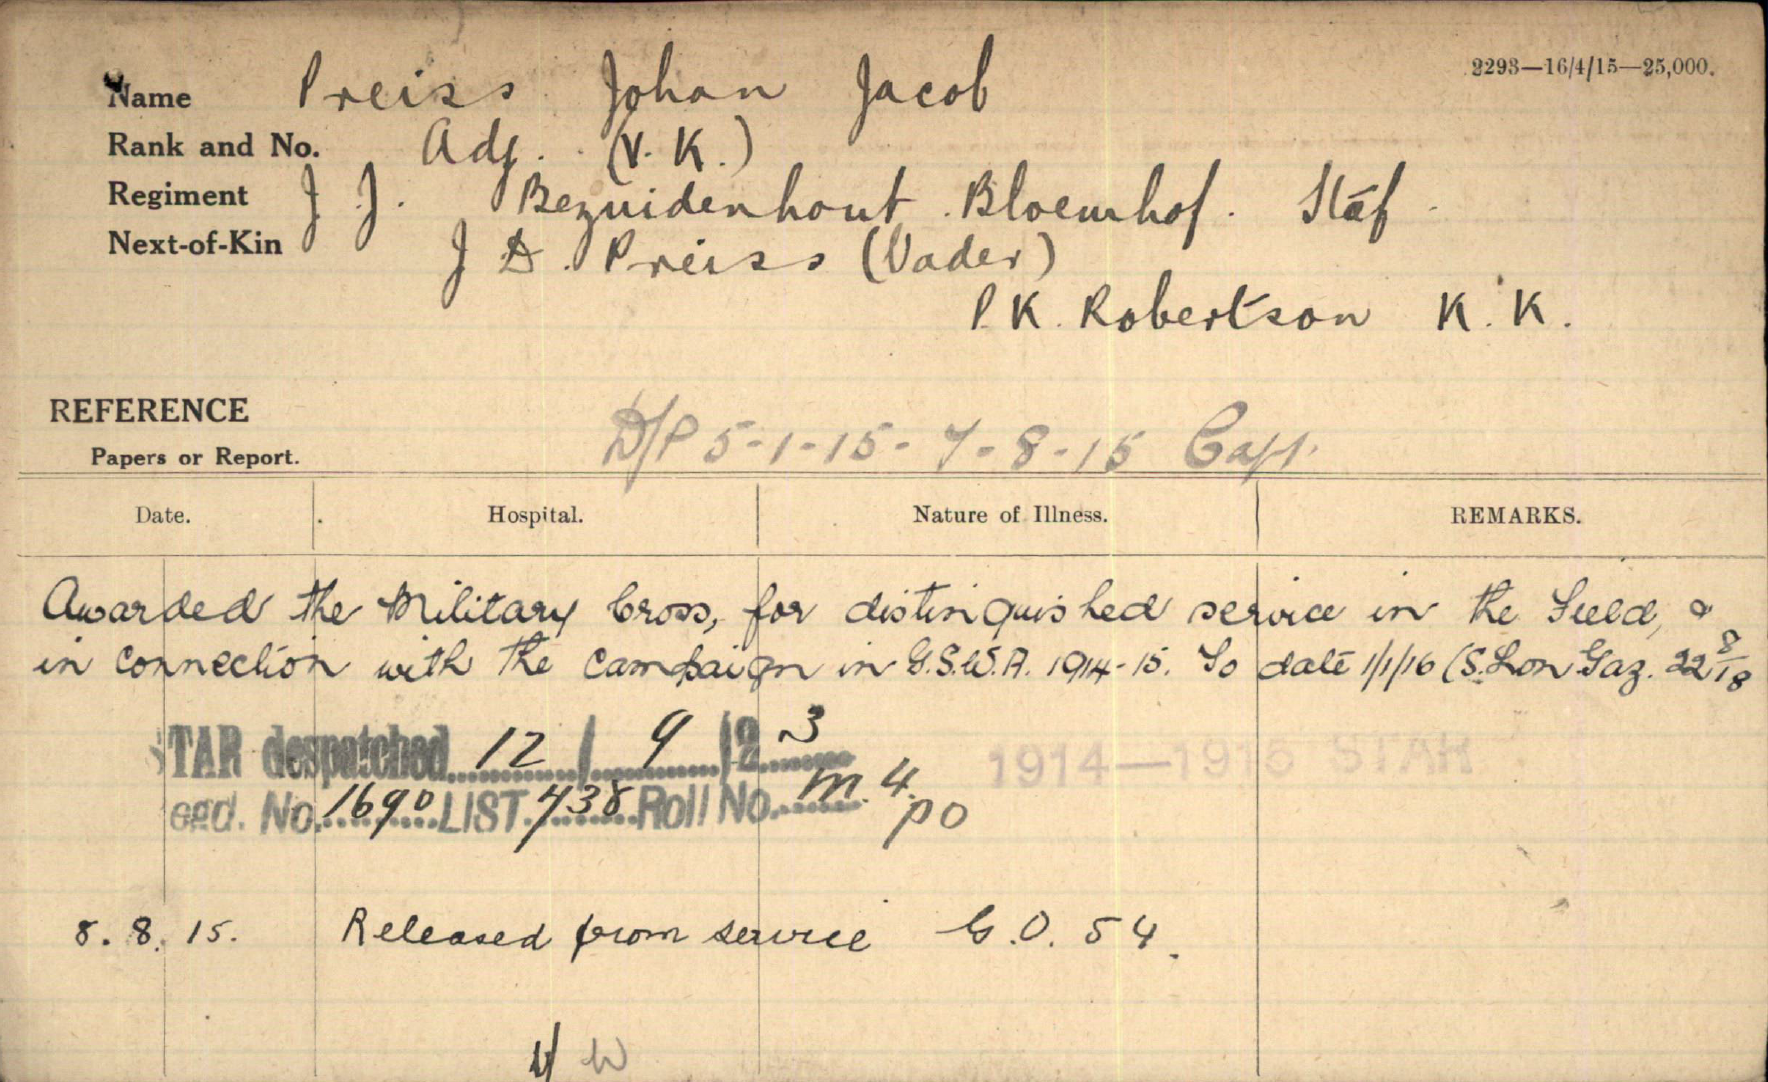 2293—16/4/15—25,000.
Name Preiss Johan Jacob
Rank and No. Adj. (V. K.)
Regiment J. J. Bezuidenhout Bloemhof. Staf.
Next-of-Kin J D. Preiss (Vader)
P.K. Robertson K. K.
REFERENCE
Papers or Report.
D/P 5-1-15-7-8-15 Capt.
Date. Hospital. Nature of Illness. REMARKS.
Awarded the Military Cross, for distinguished service in the Field, &
in connection with the campaign in G.S.W.A. 1914-15. To date 1/1/16 (S. Lon Gaz. 22 8/18
STAR despatched 12/9/23
1914—1915 STAR
egd. No. 1690 LIST 738 Roll No. M. 4.
PO
8. 8. 15. Released from service G.O. 54.
W